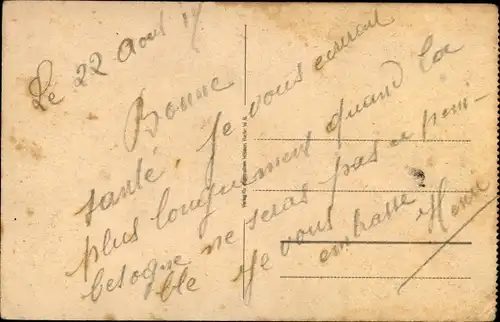 Le 22 Aout
Bonne
santé. Je vous ecrirai
plus longuement quand la
besogne ne seras pas si peni-
ble Je vous embrasse
Henri